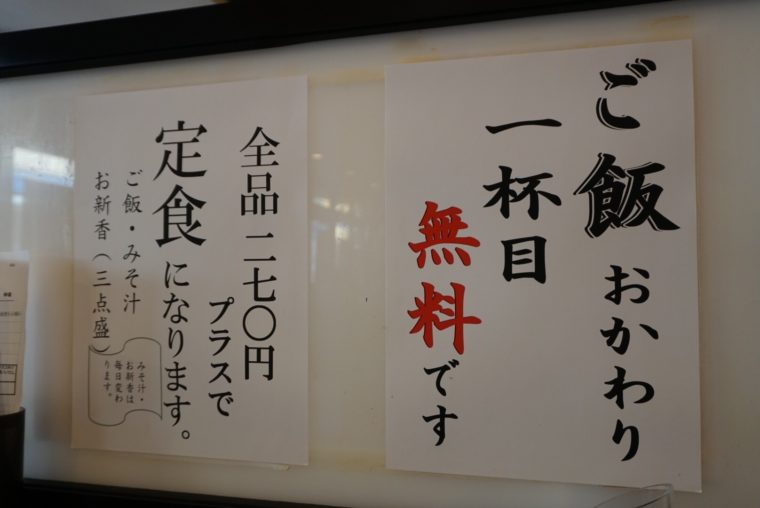 ご飯おかわり
一杯目
無料です
全品二七〇円
プラスで
定食になります。
ご飯・みそ汁
お新香（三点盛）
みそ汁・
お新香は
毎日変わ
ります。